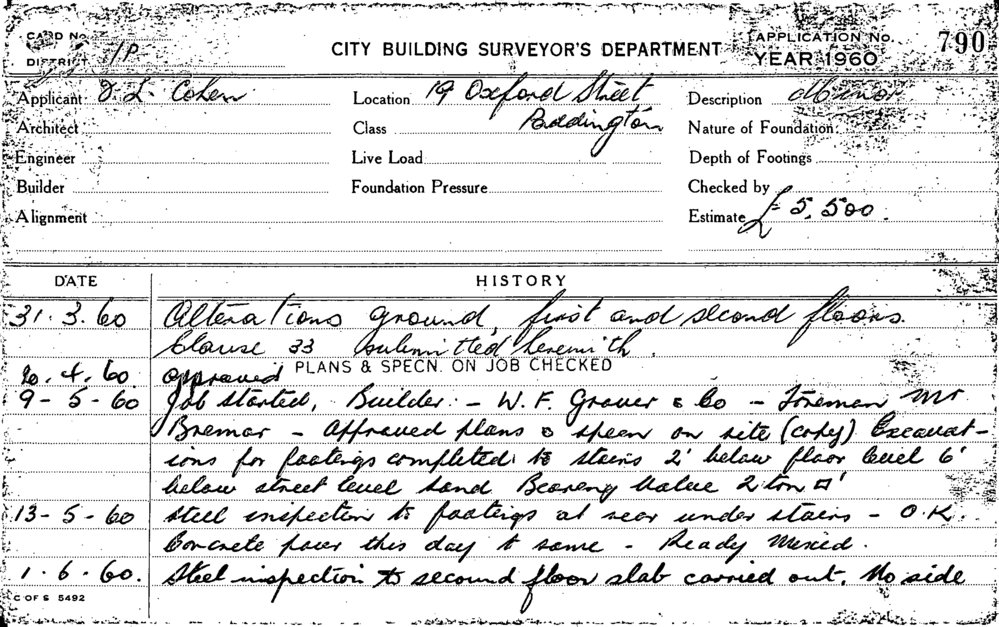 CARD No.
DISTRICT 1P.
CITY BUILDING SURVEYOR'S DEPARTMENT
APPLICATION No. 790
YEAR 1960
Applicant J. L. Cohen
Location 19 Oxford Street
Paddington
Description Minor
Architect
Class
Nature of Foundation
Engineer
Live Load
Depth of Footings
Builder
Foundation Pressure
Checked by
Alignment
Estimate £5,500.
DATE HISTORY
31.3.60 Alterations ground, first and second floors.
Clause 33 submitted herewith.
6.4.60. approved PLANS & SPECN. ON JOB CHECKED
9-5-60 Job started, Builder:- W. F. Grover & Co - Foreman Mr
Bremar - Approved plans & specn on site (copy) Excavat-
ions for footings completed to stairs 2' below floor level 6'
below street level sand Bearing Value 2 ton □'
13-5-60 Steel inspection to footings at rear under stairs - O.K.
Concrete pour this day to same - Ready Mixed.
1.6.60. Steel inspection to second floor slab carried out. No side
C OF S 5492